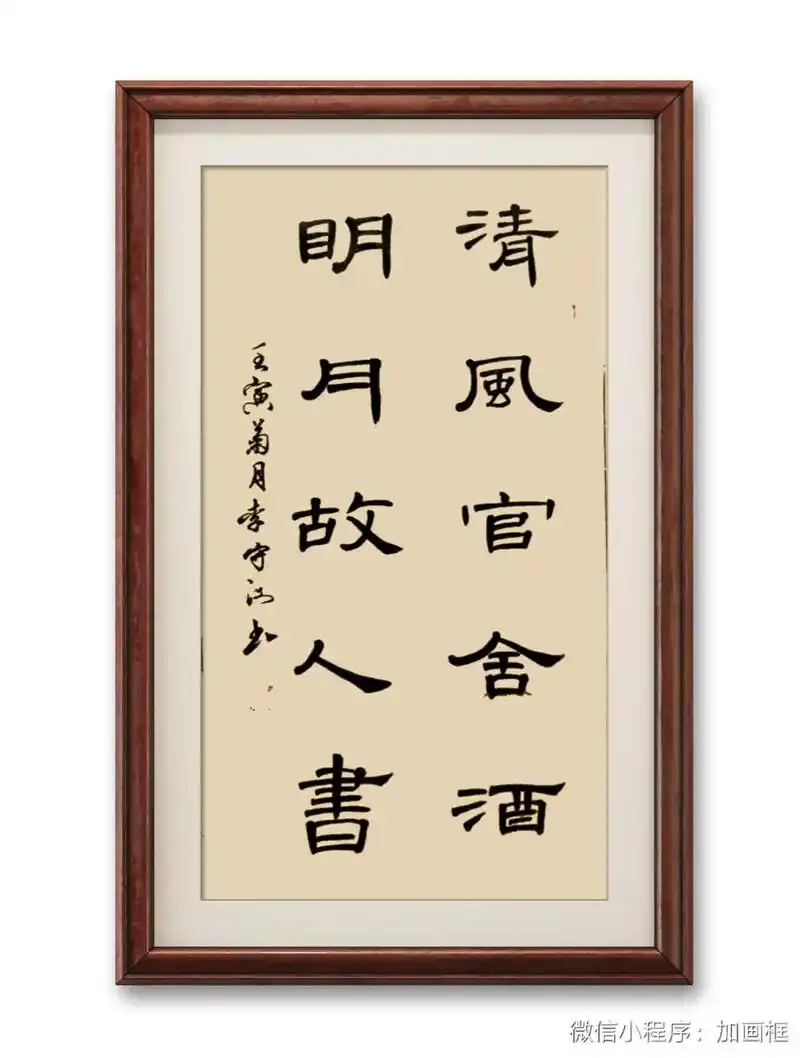 清風官舍酒
明月故人書
壬寅菊月李守河书
微信小程序：加画框